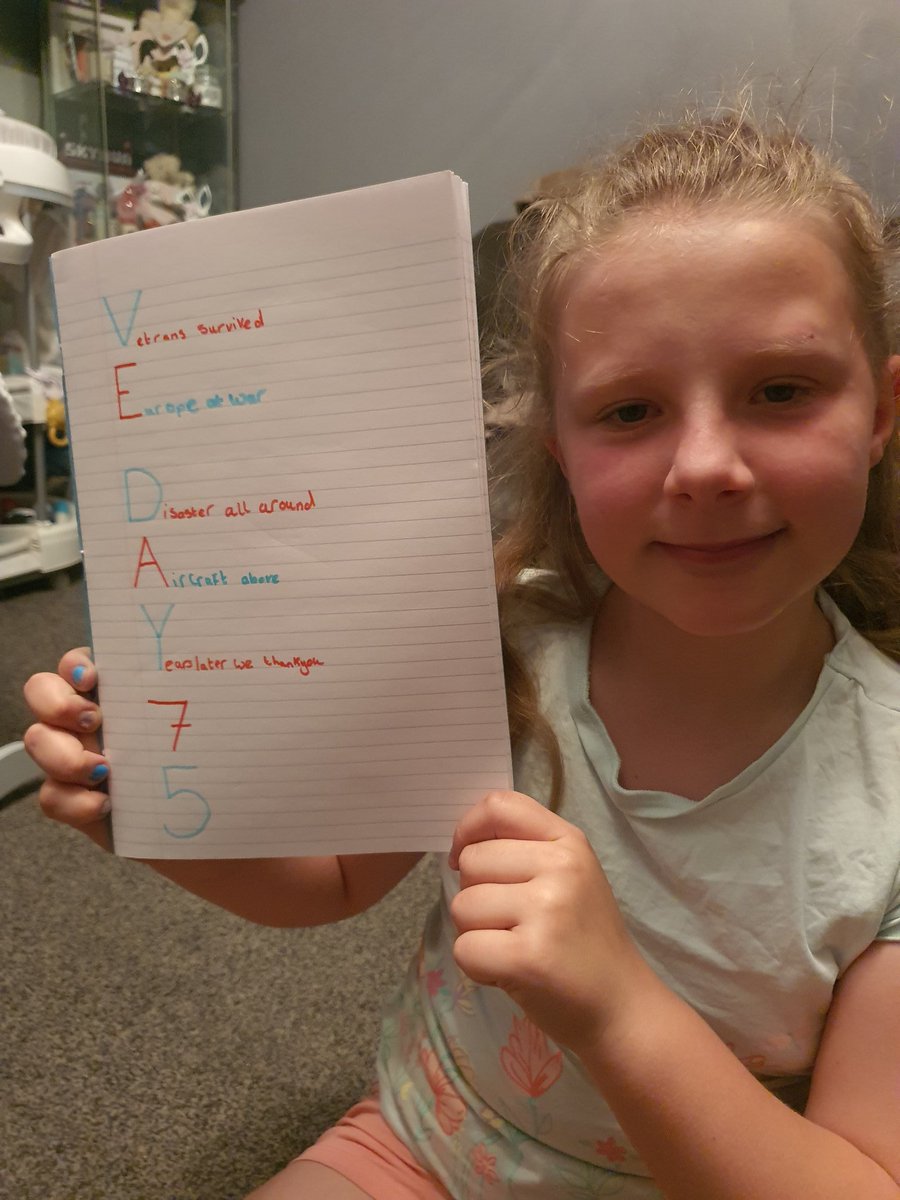 Vetrans survived
Europe at war
Disaster all around
AirCraft above
Years later we thankyou
7
5